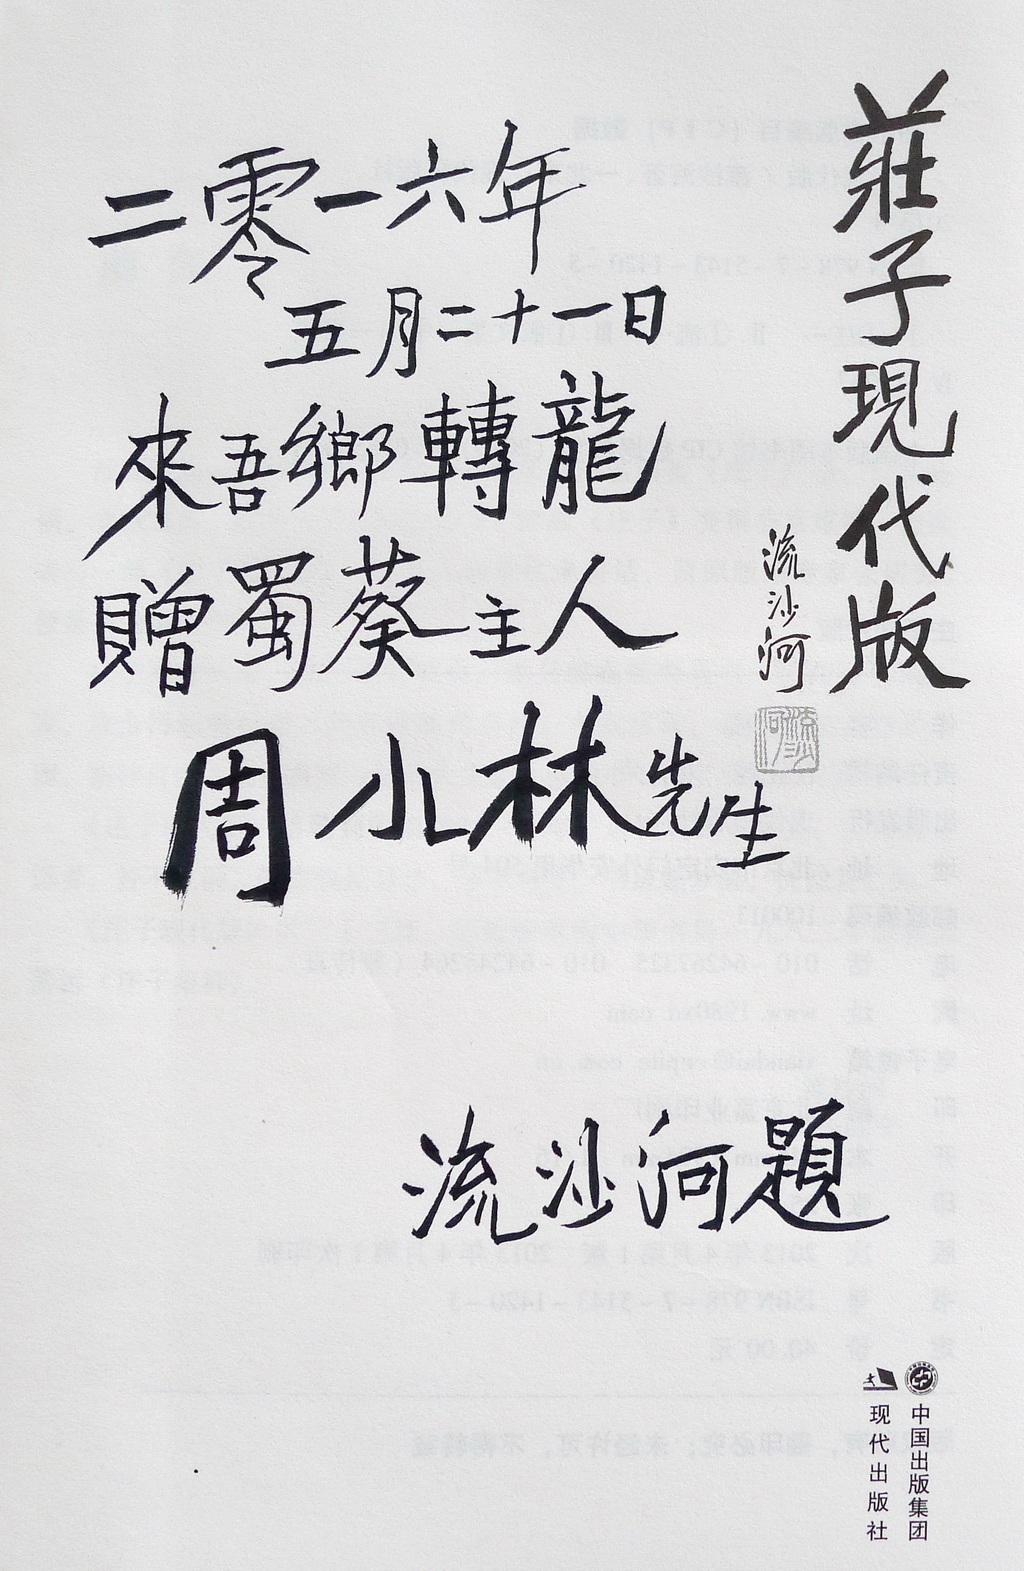 莊子現代版
流沙河
流沙河
二零一六年
五月二十一日
來吾鄉轉龍
贈蜀葵主人
周小林先生
流沙河題
中国出版集团
现代出版社